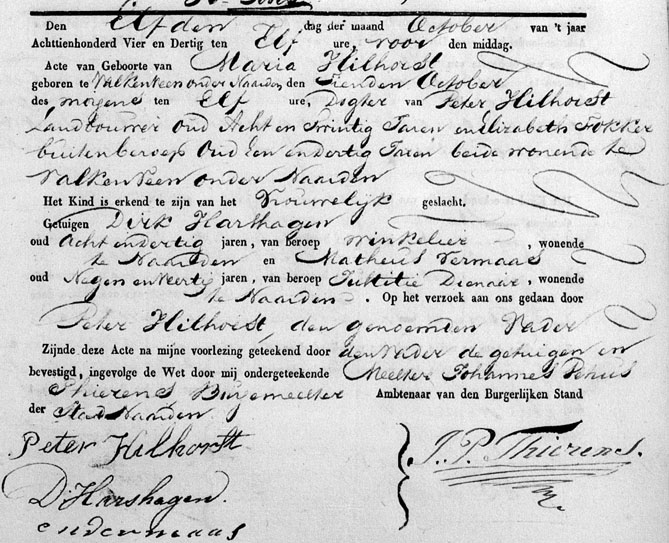 Den Elfden dag der maand October van 't jaar
Achttienhonderd Vier en Dertig ten Elf ure, voor den middag.
Acte van Geboorte van Maria Hilhorst
geboren te Valkenveen onder Naarden den Tienden October
des morgens ten Elf ure, Dogter van Peter Hilhorst
Landbouwer oud Acht en Twintig Jaren en Elizabeth Fokker
buitenberoep Oud Een en dertig Jaren beide wonende te
Valkenveen onder Naarden
Het Kind is erkend te zijn van het Vrouwelijk geslacht.
Getuigen Dirk Harshagen
oud Acht en dertig jaren, van beroep winkelier, wonende
te Naarden en Matheus Vermaas
oud Negen en jaren, van beroep Justitie Dienaar, wonende
te Naarden. Op het verzoek aan ons gedaan door
Peter Hilhorst, den genoemden Vader
Zijnde deze Acte na mijne voorlezing geteekend door den Vader de getuigen en
bevestigd, ingevolge de Wet door mij ondergeteekende Meester Johannes
Thierens Burgemeester Ambtenaar van den Burgerlijken Stand
der Stad Naarden.
Peter Hilhorst
J. P. Thierens.
D. Harshagen.